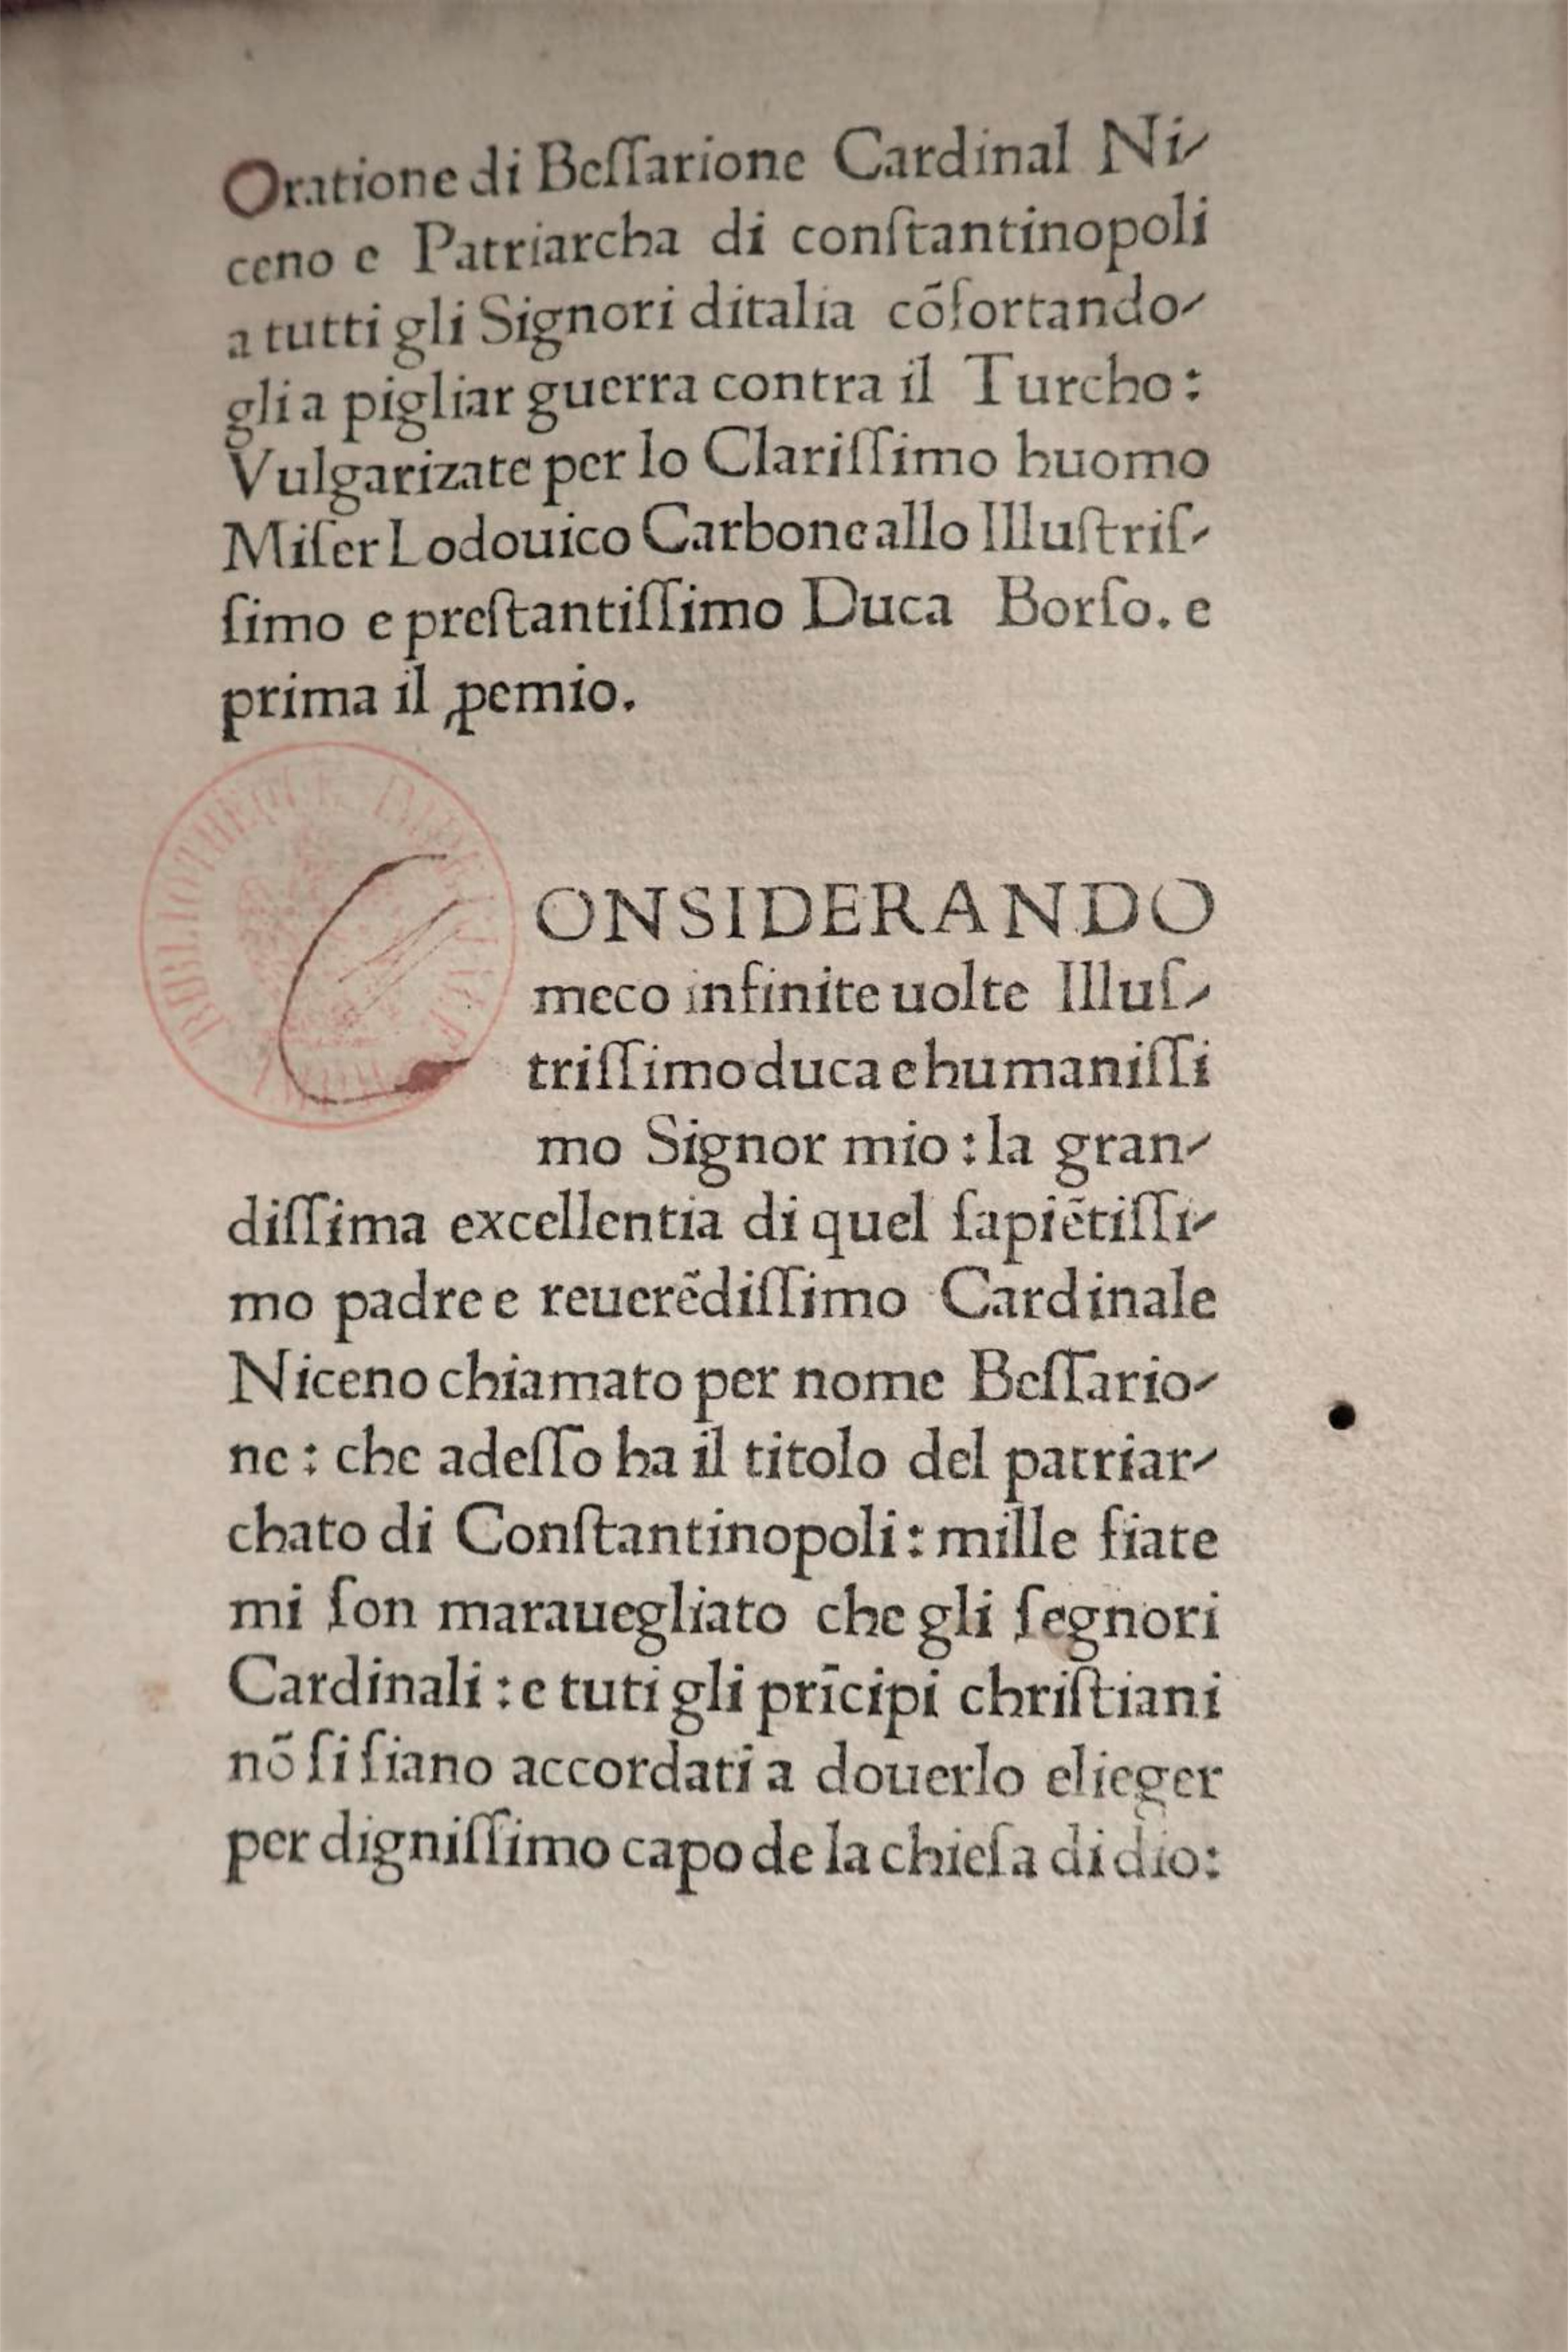 Oratione di Beſſarione Cardinal Ni-
ceno e Patriarcha di conſtantinopoli
a tutti gli Signori ditalia cõfortando-
gli a pigliar guerra contra il Turcho:
Vulgarizate per lo Clariſſimo huomo
Miſer Lodouico Carbone allo Illuſtriſ-
ſimo e preſtantiſſimo Duca Borſo. e
prima il ꝓemio.
BIBLIOTHEQUE
C
ONSIDERANDO
meco infinite uolte Illuſ-
triſſimo duca e humaniſſi
mo Signor mio: la gran-
diſſima excellentia di quel ſapiẽtiſſi-
mo padre e reuerẽdiſſimo Cardinale
Niceno chiamato per nome Beſſario-
ne: che adeſſo ha il titolo del patriar-
chato di Conſtantinopoli: mille fiate
mi ſon marauegliato che gli ſegnori
Cardinali: e tuti gli prīcipi chriſtiani
nõ ſi ſiano accordati a douerlo elieger
per digniſſimo capo de la chieſa di dio: